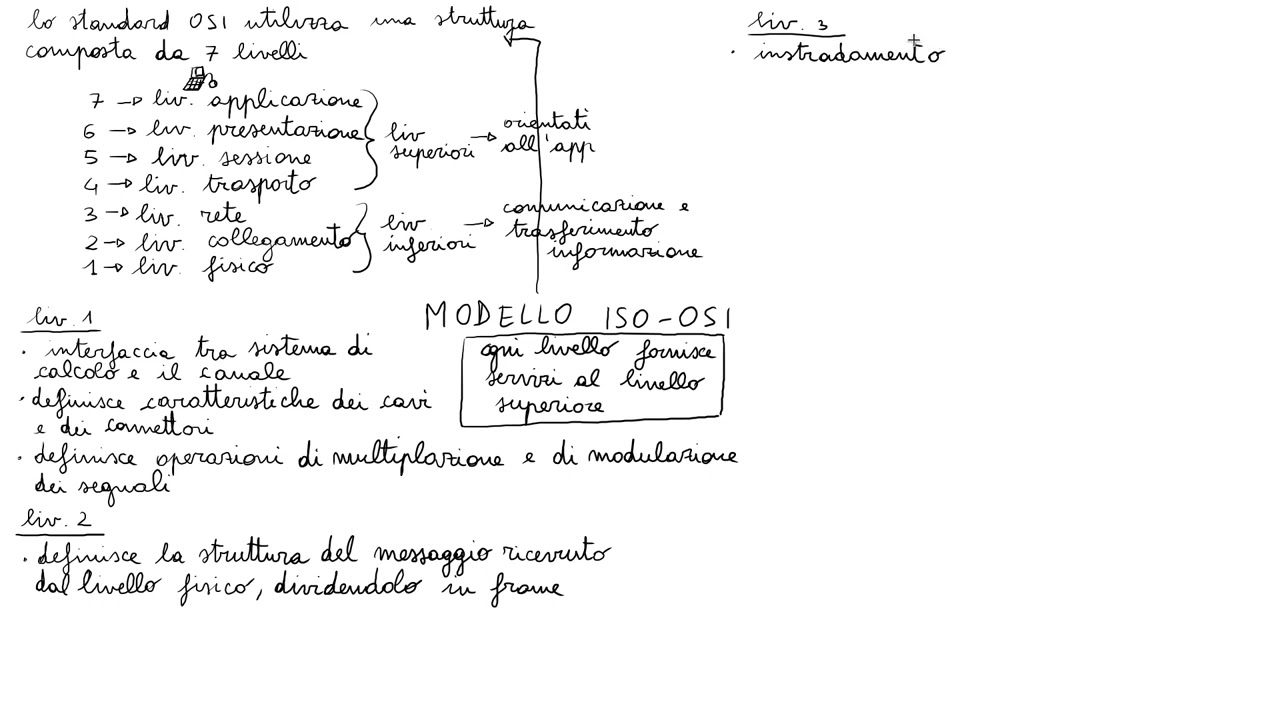 lo standard OSI utilizza una struttura
composta da 7 livelli
7 → liv. applicazione
6 → liv. presentazione
5 → liv. sessione
4 → liv. trasporto
liv
superiori → orientati
all'app
3 → liv. rete
2 → liv. collegamento
1 → liv. fisico
liv
inferiori → comunicazione e
trasferimento
informazione
MODELLO ISO-OSI
ogni livello fornisce
servizi al livello
superiore
liv. 1
· interfaccia tra sistema di
calcolo e il canale
· definisce caratteristiche dei cavi
e dei connettori
· definisce operazioni di multiplazione e di modulazione
dei segnali
liv. 2
· definisce la struttura del messaggio ricevuto
dal livello fisico, dividendolo in frame
liv. 3
· instradamento